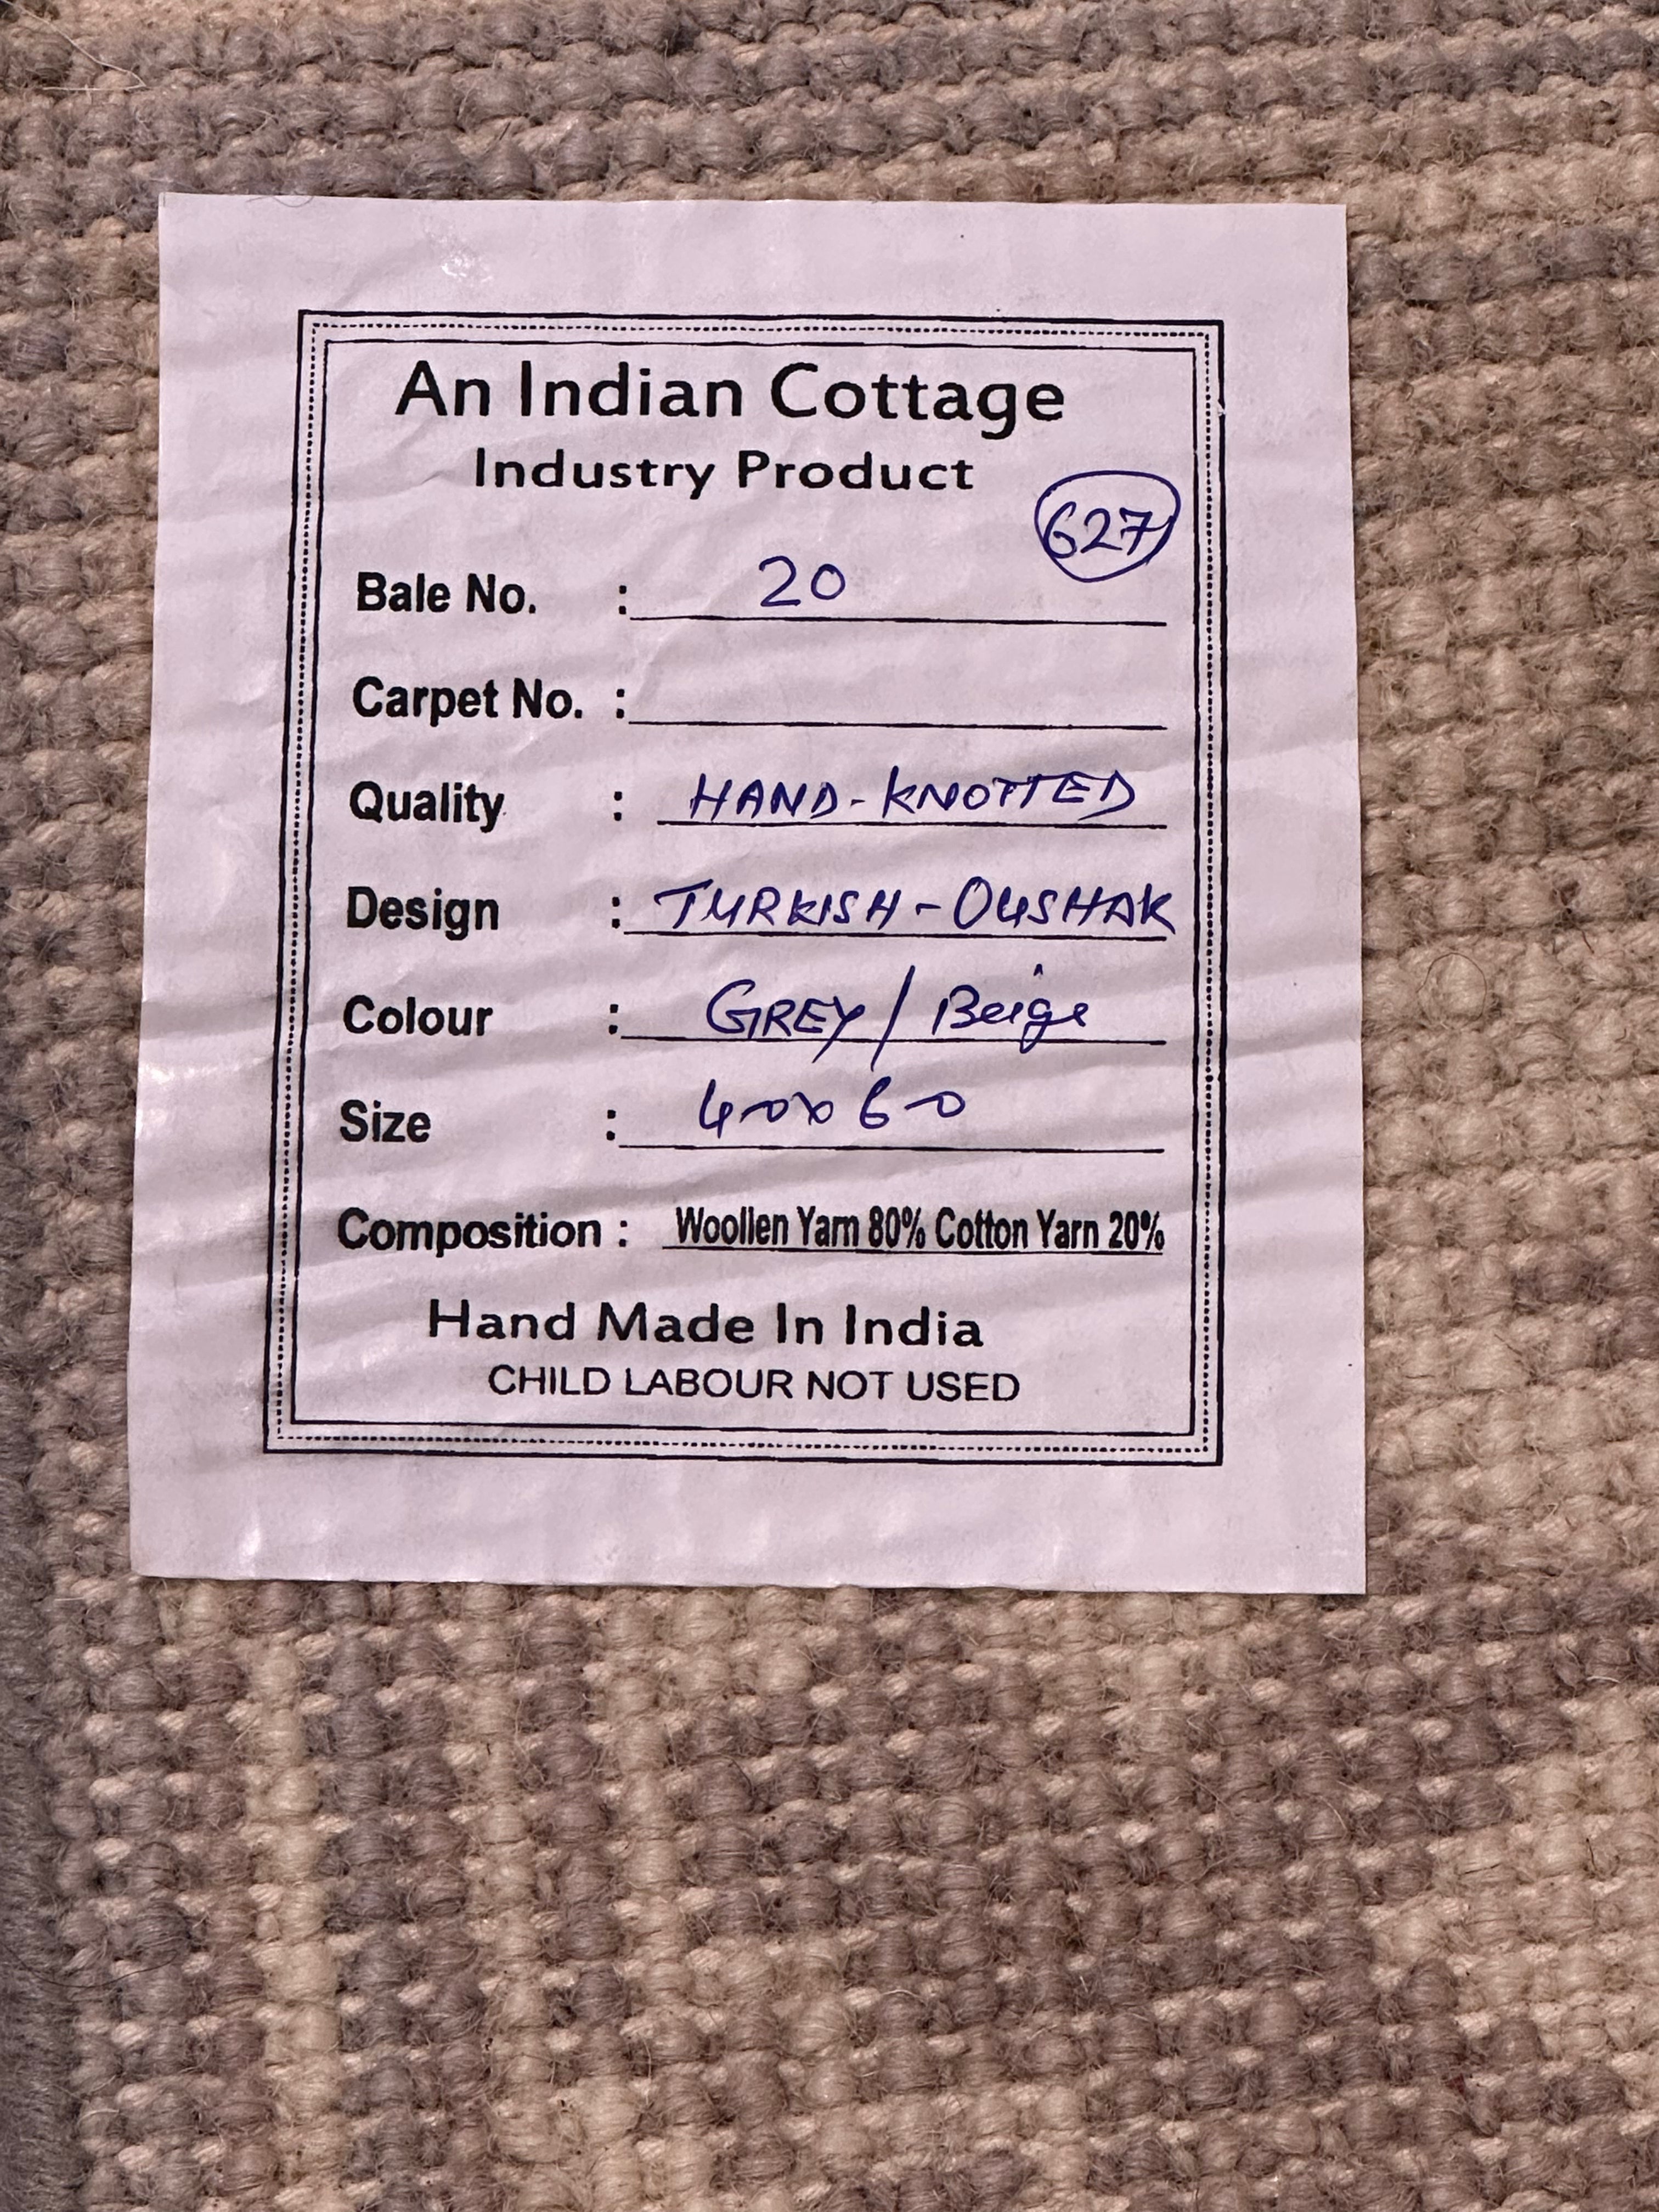 An Indian Cottage
Industry Product
627
Bale No. : 20
Carpet No. :
Quality : HAND-KNOTTED
Design : TURKISH-OUSHAK
Colour : GREY / Beige
Size : 40x60
Composition : Woollen Yarn 80% Cotton Yarn 20%
Hand Made In India
CHILD LABOUR NOT USED